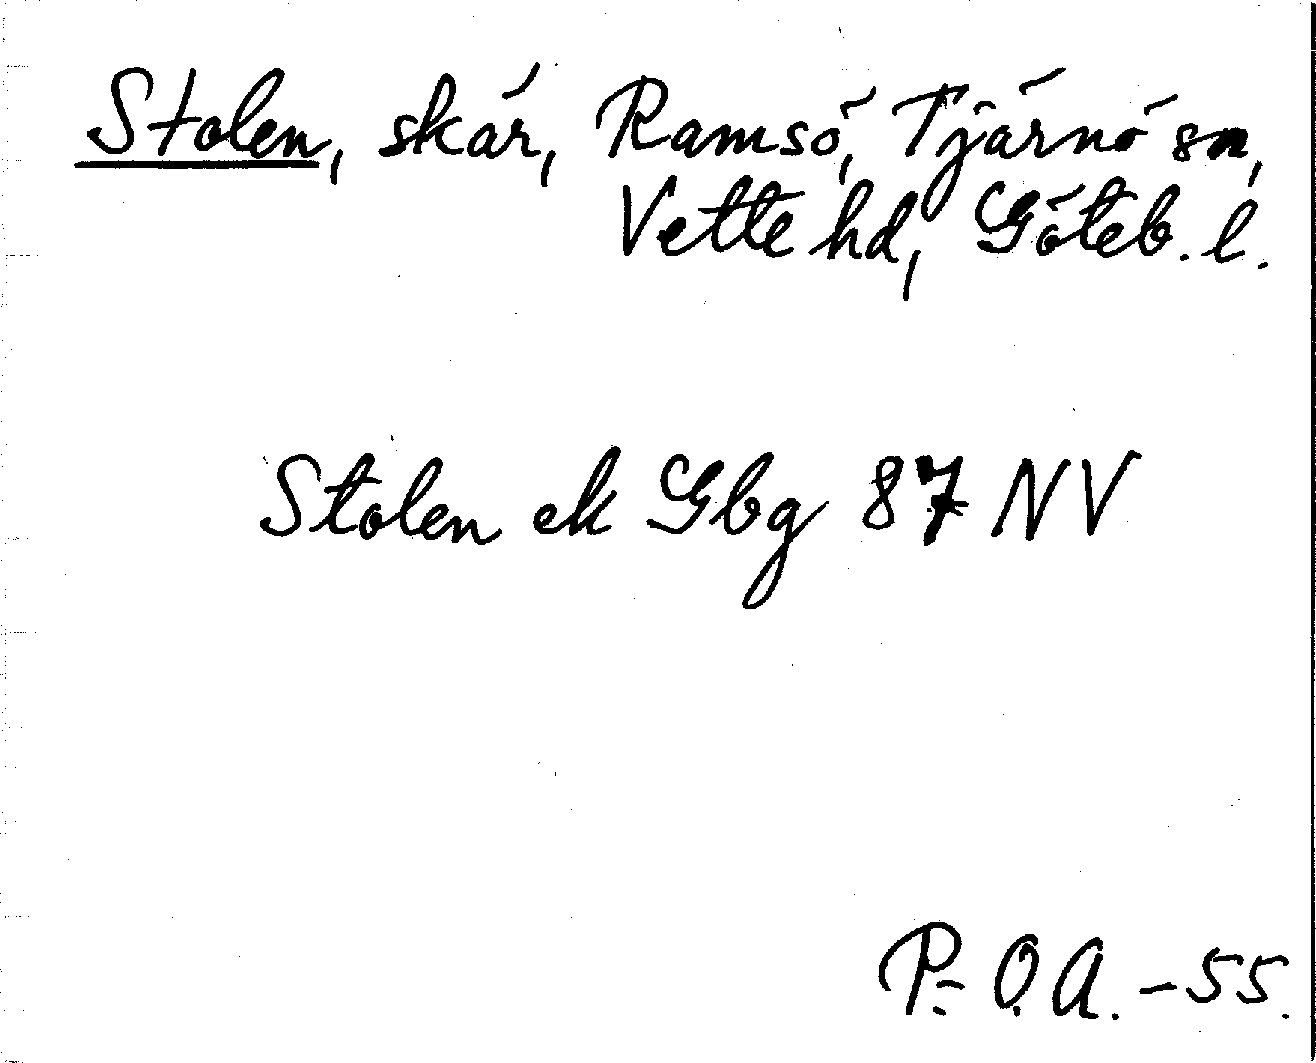 Stolen, skär, Ramsö, Tjärnö sn,
Vette hd, Göteb. l.
Stolen ek Gbg 87 NV
P-O.A. -55.